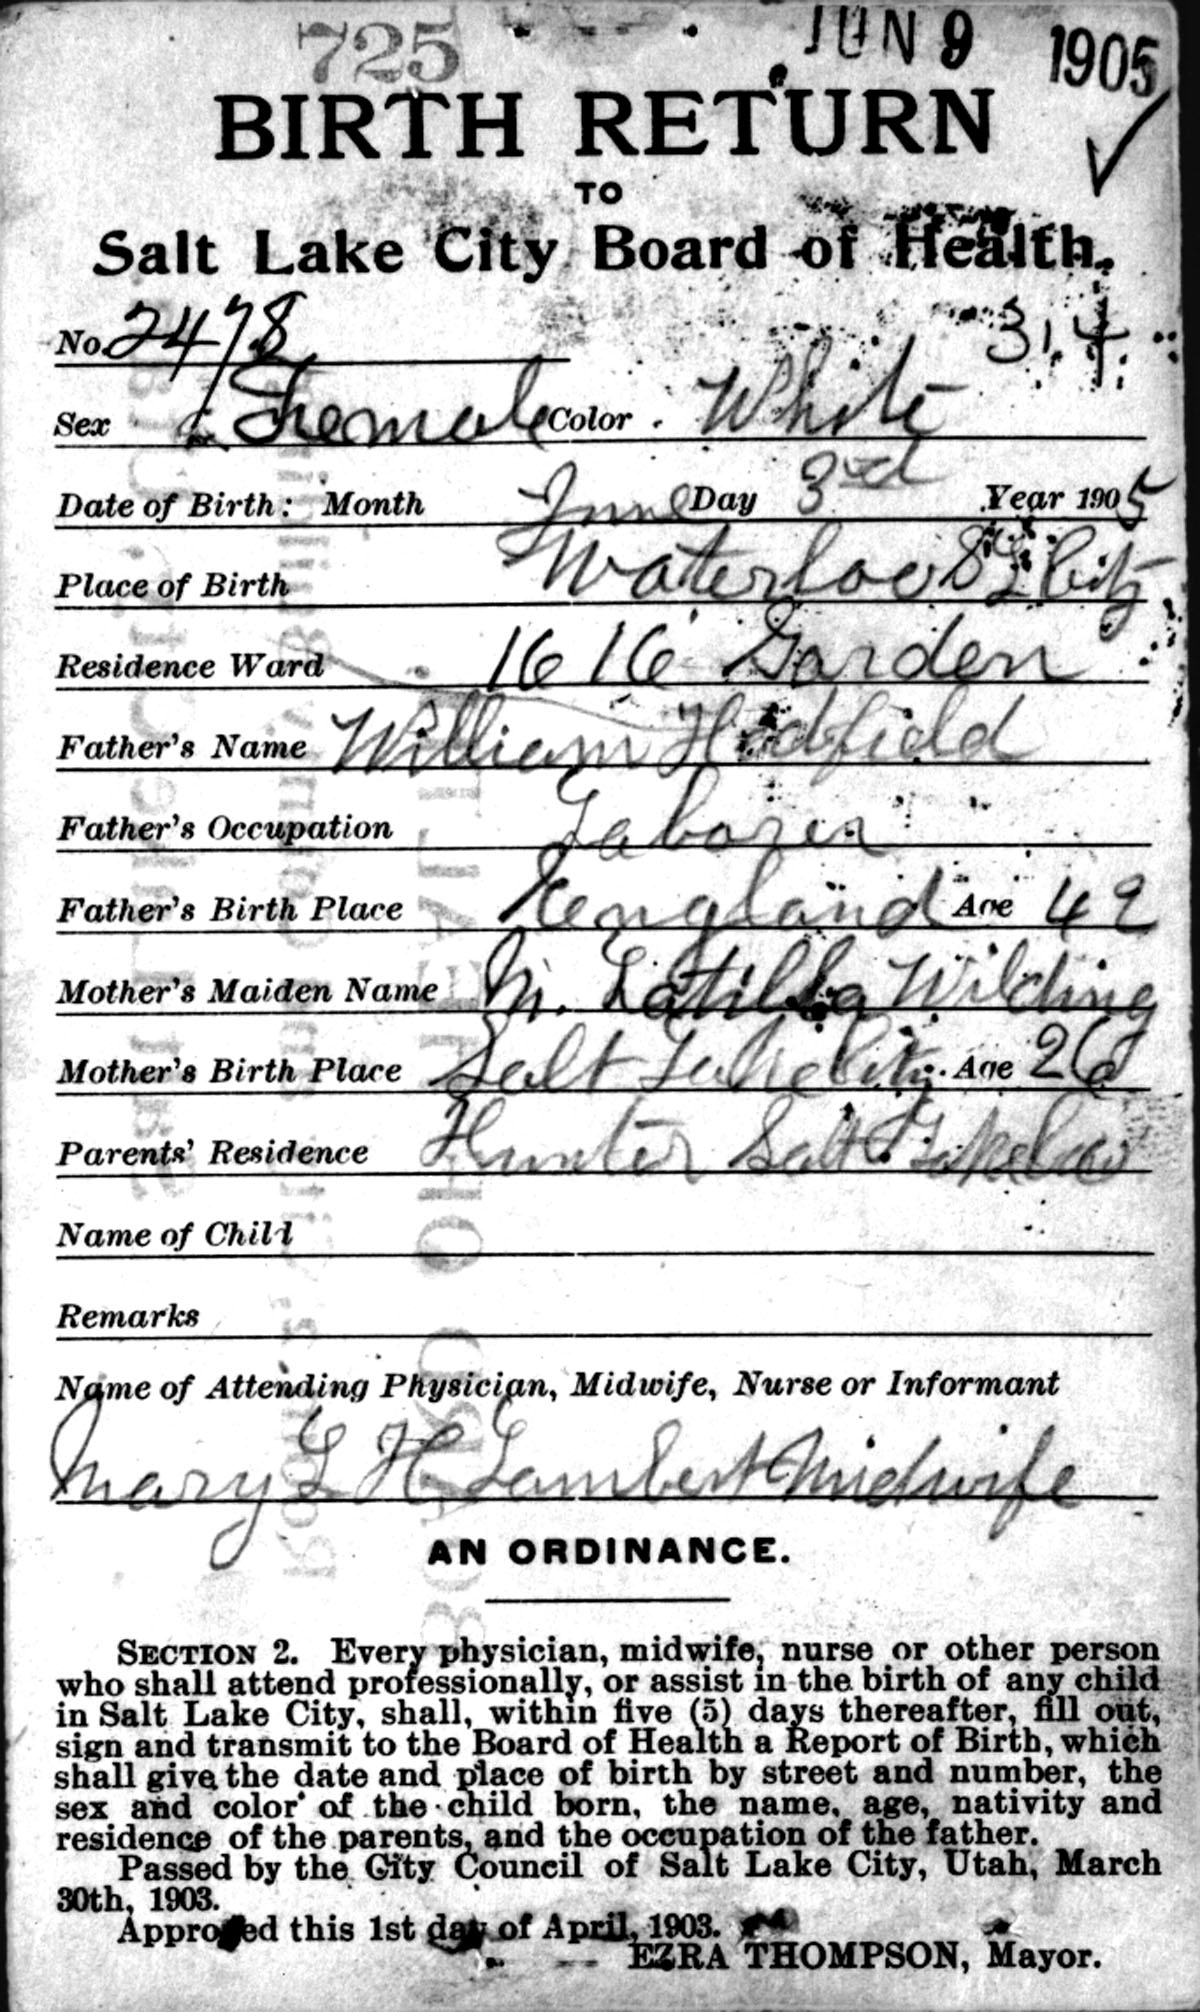 725 JUN 9 1905
BIRTH RETURN
TO
Salt Lake City Board of Health.
No. 2478 314
Sex Female Color White
Date of Birth: Month June Day 3rd Year 1905
Place of Birth Waterloo S L City
Residence Ward 1616 Garden
Father's Name William Hadfield
Father's Occupation Laborer
Father's Birth Place England Age 42
Mother's Maiden Name M. Latilla Wilding
Mother's Birth Place Salt Lake City. Age 26
Parents' Residence Hunter Salt Lake Co
Name of Child
Remarks
Name of Attending Physician, Midwife, Nurse or Informant
Mary L H Lambert Midwife
AN ORDINANCE.
SECTION 2. Every physician, midwife, nurse or other person
who shall attend professionally, or assist in the birth of any child
in Salt Lake City, shall, within five (5) days thereafter, fill out,
sign and transmit to the Board of Health a Report of Birth, which
shall give the date and place of birth by street and number, the
sex and color of the child born, the name, age, nativity and
residence of the parents, and the occupation of the father.
Passed by the City Council of Salt Lake City, Utah, March
30th, 1903.
Approved this 1st day of April, 1903.
EZRA THOMPSON, Mayor.